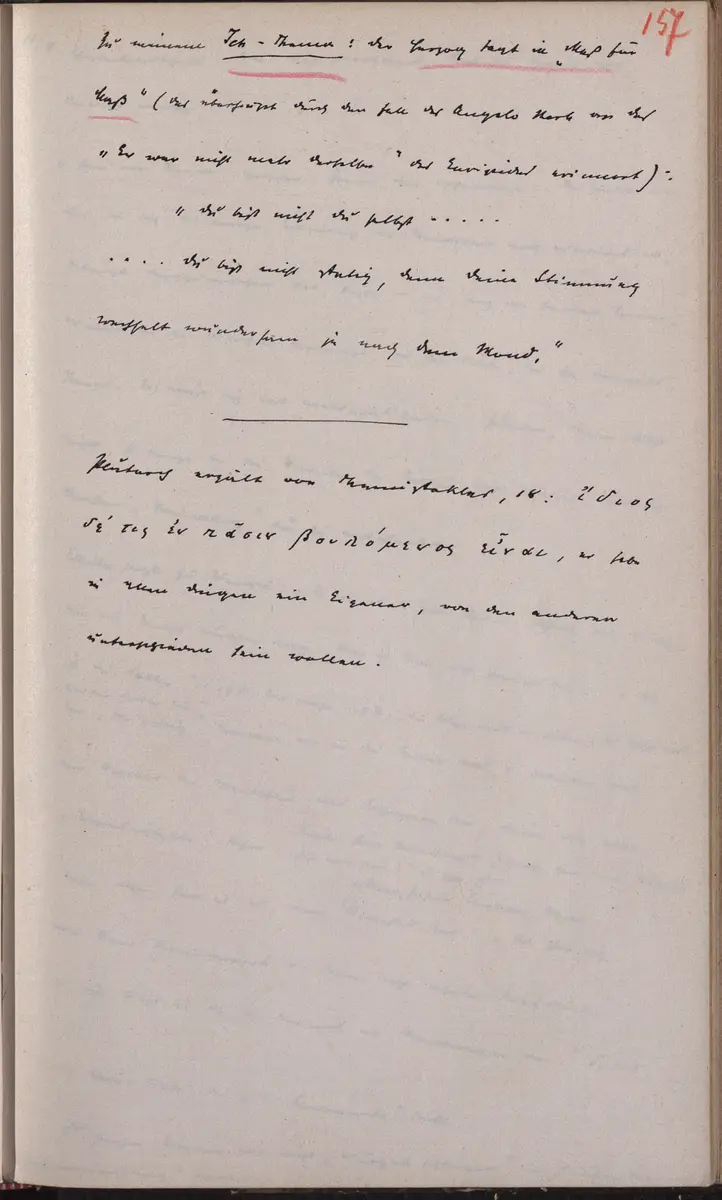 157
Zu meinem Ich-Thema: der Herzog sagt in „Maß für
Maß" (das überhaupt durch den Fall des Angelo stark an das
„Er war nicht mehr derselbe" des Euripides erinnert):
„du bist nicht du selbst . . . . .
. . . . du bist nicht stetig, denn deine Stimmung
wechselt wundersam je nach dem Mond."
Plutarch erzält von Themistokles, 18: ἴδιος
δέ τις ἐν πᾶσιν βουλόμενος εἶναι, er habe
in allen Dingen ein Eigener, von den anderen
unterschieden sein wollen.